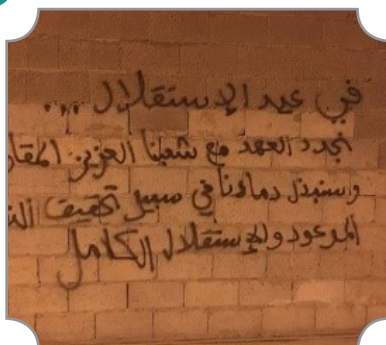 في عيد الإستقلال ...
نجدد العهد مع شعبنا العزيز المقا
وسنبذل دماءنا في سبيل تحقيق الن
الموعود والإستقلال الكامل